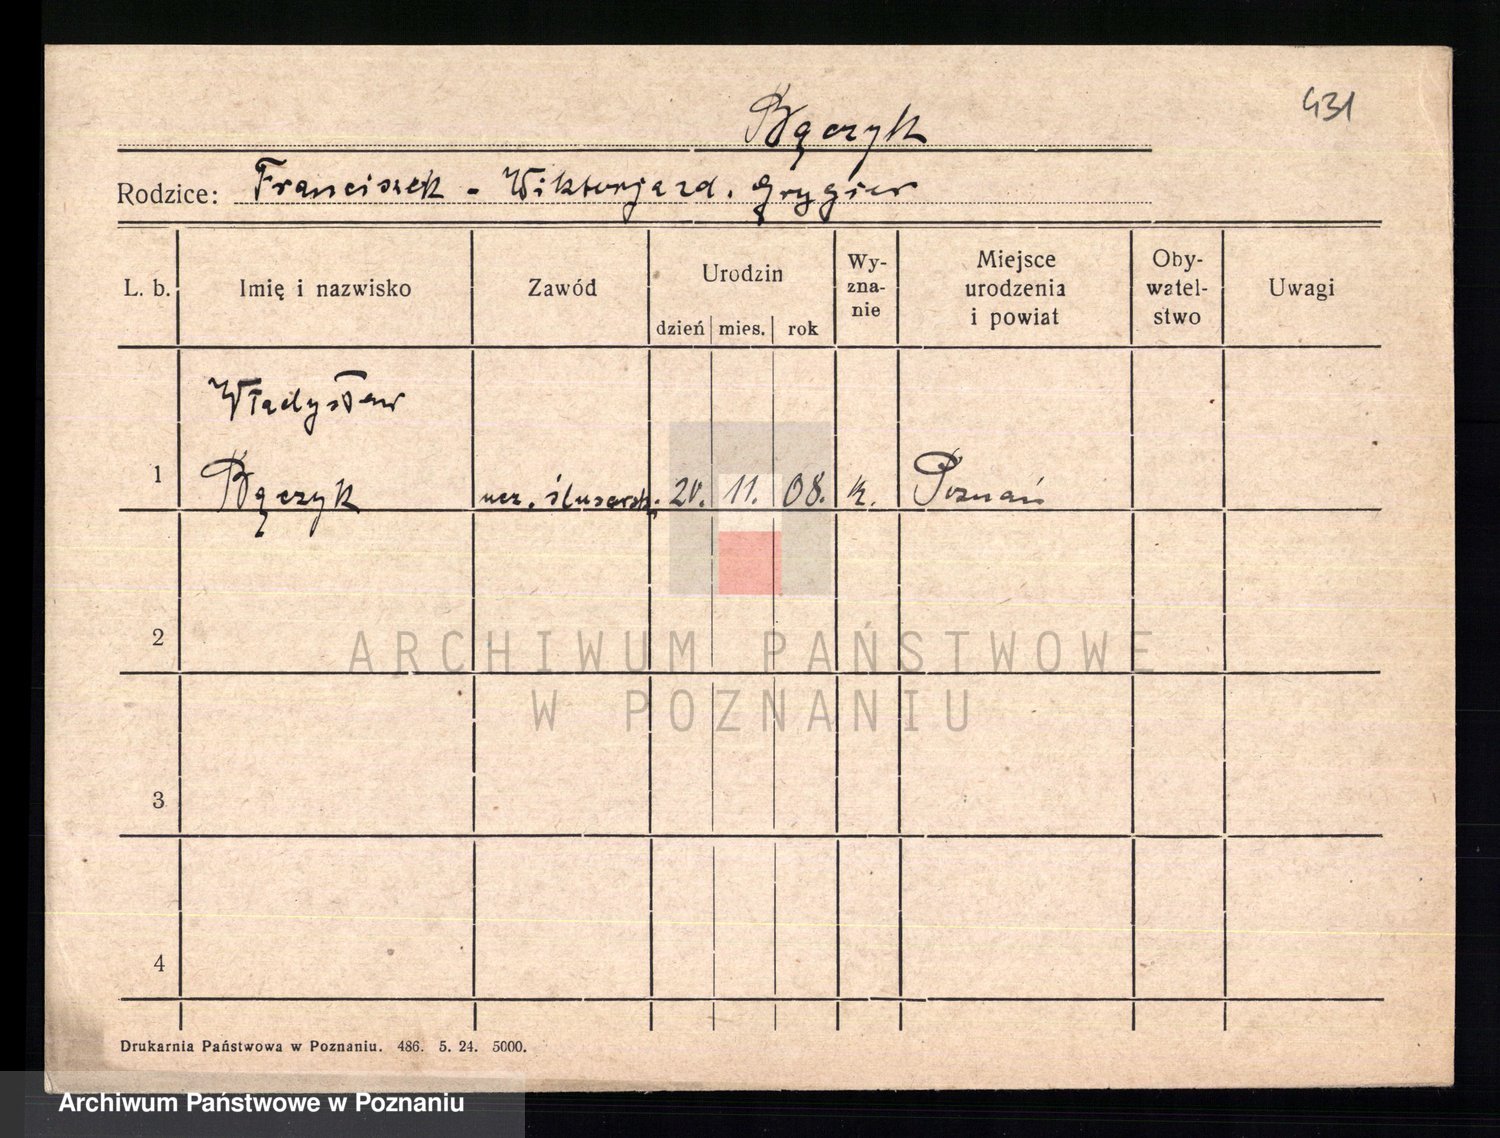 431
Bączyk
Rodzice: Franciszek - Wiktorja zd. Grygier
L. b. Imię i nazwisko Zawód Urodzin dzień mies. rok Wy-zna-nie Miejsce urodzenia i powiat Oby-watel-stwo Uwagi
Władysław
1 Bączyk ucz. ślusarsk. 20. 11. 08. k. Poznań
2
ARCHIWUM PAŃSTWOWE
W POZNANIU
3
4
Drukarnia Państwowa w Poznaniu. 486. 5. 24. 5000.
Archiwum Państwowe w Poznaniu